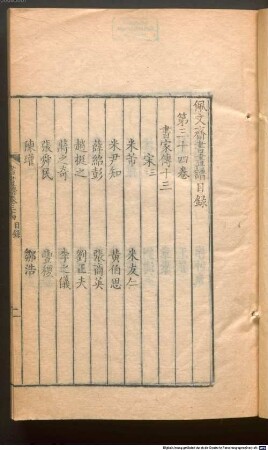 佩文齋書畫譜目錄
第三十四卷
書家傳十三
宋三
米芾 米友仁
米尹知 黃伯思
薛紹彭 張商英
趙挺之 劉正夫
蔣之奇 李之儀
張舜民 豐稷
陳瓘 鄒浩